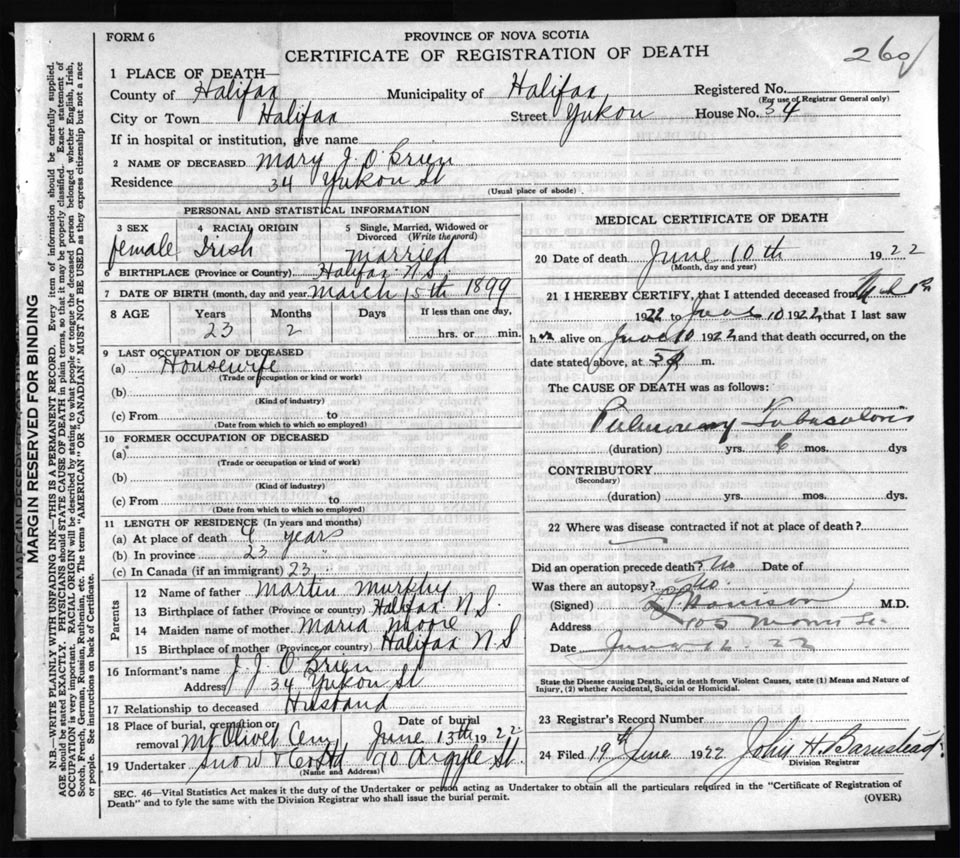 FORM 6
PROVINCE OF NOVA SCOTIA
CERTIFICATE OF REGISTRATION OF DEATH
260
1 PLACE OF DEATH—
County of Halifax Municipality of Halifax Registered No.
(For use of Registrar General only)
City or Town Halifax Street Yukon House No. 34
If in hospital or institution, give name
2 NAME OF DECEASED Mary J. O'Brien
Residence 34 Yukon St
(Usual place of abode)
PERSONAL AND STATISTICAL INFORMATION
3 SEX female
4 RACIAL ORIGIN Irish
5 Single, Married, Widowed or Divorced (Write the word) Married
6 BIRTHPLACE (Province or Country) Halifax N.S.
7 DATE OF BIRTH (month, day and year) March 15th 1899
8 AGE Years Months Days If less than one day,
23 2 hrs. or min.
9 LAST OCCUPATION OF DECEASED
(a) Housewife
(Trade or occupation or kind or work)
(b)
(Kind of industry)
(c) From to
(Date from which to which so employed)
10 FORMER OCCUPATION OF DECEASED
(a)
(Trade or occupation or kind of work)
(b)
(Kind of industry)
(c) From to
(Date from which to which so employed)
11 LENGTH OF RESIDENCE (In years and months)
(a) At place of death years
(b) In province 23 "
(c) In Canada (if an immigrant) 23 "
Parents
12 Name of father Martin Murphy
13 Birthplace of father (Province or country) Halifax N.S.
14 Maiden name of mother Maria Moore
15 Birthplace of mother (Province or country) Halifax N S
16 Informant's name J. J. O'Brien
Address 34 Yukon St
17 Relationship to deceased Husband
18 Place of burial, cremation or removal Mt Olivet Cem Date of burial June 13th 1922
19 Undertaker Snow & Co Ltd 90 Argyle St.
(Name and Address)
MEDICAL CERTIFICATE OF DEATH
20 Date of death June 10th 1922
(Month, day and year)
21 I HEREBY CERTIFY, that I attended deceased from
1922 to June 10 1922 that I last saw
her alive on June 10 1922 and that death occurred, on
date stated above, at m.
The CAUSE OF DEATH was as follows:
Pulmonary Tuberculosis
(duration) yrs. 6 mos. dys
CONTRIBUTORY
(Secondary)
(duration) yrs. mos. dys.
22 Where was disease contracted if not at place of death?
Did an operation precede death? No Date of
Was there an autopsy? No
(Signed) M.D.
Address 105 Morris St.
Date June 22
State the Disease causing Death, or in death from Violent Causes, state (1) Means and Nature of
Injury, (2) whether Accidental, Suicidal or Homicidal.
23 Registrar's Record Number
24 Filed 19th June 1922 John H. Barnstead
Division Registrar
SEC. 46—Vital Statistics Act makes it the duty of the Undertaker or person acting as Undertaker to obtain all the particulars required in the "Certificate of Registration of
Death" and to fyle the same with the Division Registrar who shall issue the burial permit.
(OVER)
MARGIN RESERVED FOR BINDING
N.B.—WRITE PLAINLY WITH UNFADING INK—THIS IS A PERMANENT RECORD. Every item of information should be carefully supplied.
AGE should be stated EXACTLY. PHYSICIANS should STATE CAUSE OF DEATH in plain terms, so that it may be properly classified. Exact statement of
OCCUPATION is very important. RACIAL ORIGIN will be described by stating to what people or tongue the deceased person belonged whether English, Irish,
Scotch, French, German, Russian, Ruthenian, etc. The terms "AMERICAN" OR "CANADIAN" MUST NOT BE USED as they express citizenship but not a race
or people. See instructions on back of Certificate.